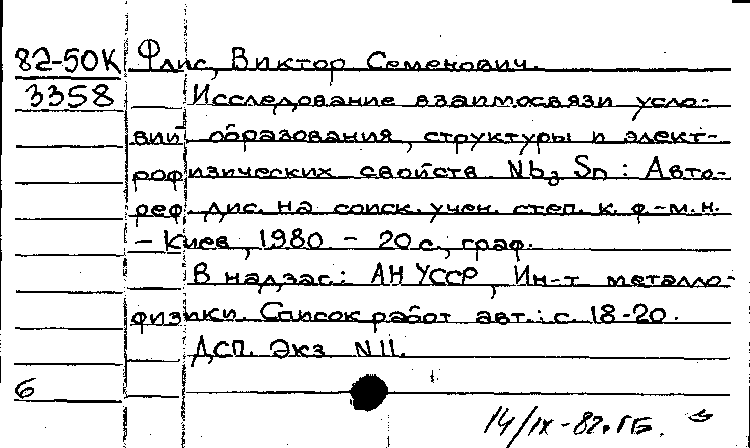 82-50К Флис, Виктор Семенович.
3358 Исследование взаимосвязи усло-
вий образования, структуры и элект-
рофизических свойств Nb3 Sn : Авто-
реф. дис. на соиск. учен. степ. к. ф.-м.н.
- Киев, 1980. - 20 с., граф.
В надзаг.: АН УССР, Ин-т металло-
физики. Список работ авт.: с. 18-20.
ДСП. Экз N11.
6
14/IX-82. ГБ.